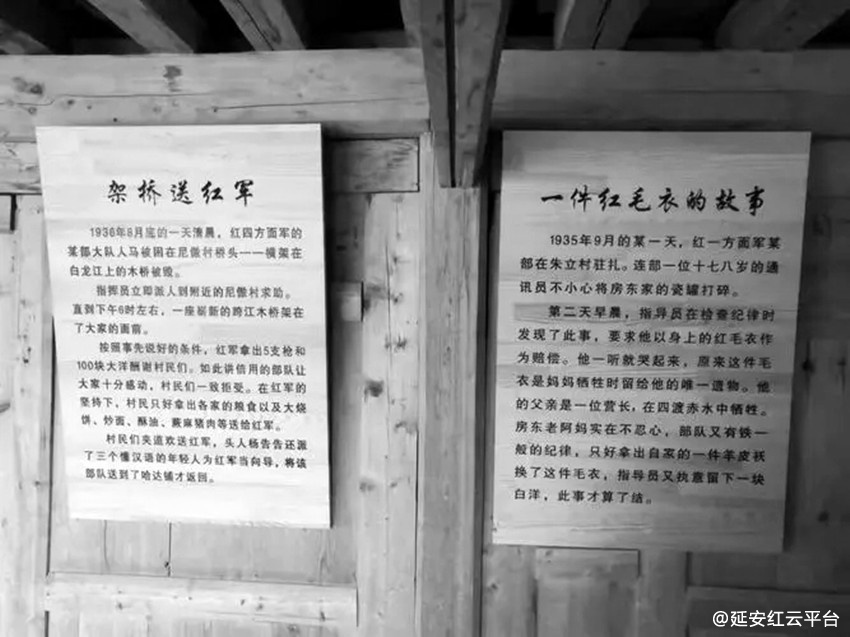 架桥送红军
1936年8月底的一天清晨，红四方面军的
某部大队人马被困在尼傲村桥头——横架在
白龙江上的木桥被毁。
指挥员立即派人到附近的尼傲村求助。
直到下午6时左右，一座崭新的跨江木桥架在
了大家的面前。
按照事先说好的条件，红军拿出5支枪和
100块大洋酬谢村民们。如此讲信用的部队让
大家十分感动，村民们一致拒受。在红军的
坚持下，村民只好拿出各家的粮食以及大烧
饼、炒面、酥油、蕨麻猪肉等送给红军。
村民们夹道欢送红军，头人杨告告还派
了三个懂汉语的年轻人为红军当向导，将该
部队送到了哈达铺才返回。
一件红毛衣的故事
1935年9月的某一天，红一方面军某
部在朱立村驻扎。连部一位十七八岁的通
讯员不小心将房东家的瓷罐打碎。
第二天早晨，指导员在检查纪律时
发现了此事，要求他以身上的红毛衣作
为赔偿。他一听就哭起来，原来这件毛
衣是妈妈牺牲时留给他的唯一遗物。他
的父亲是一位营长，在四渡赤水中牺牲。
房东老阿妈实在不忍心，部队又有铁一
般的纪律，只好拿出自家的一件羊皮袄
换了这件毛衣，指导员又执意留下一块
白洋，此事才算了结。
@延安红云平台